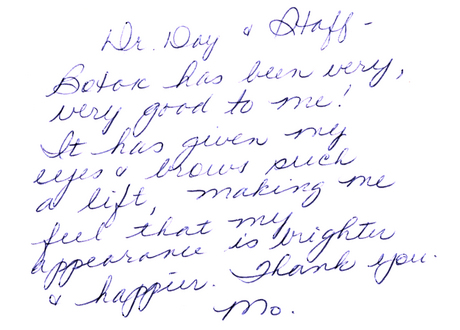 Dr. Day & Staff -
Botox has been very,
very good to me!
It has given my
eyes & brows such
a lift, making me
feel that my
appearance is brighter
& happier. Thank you.
Mo.